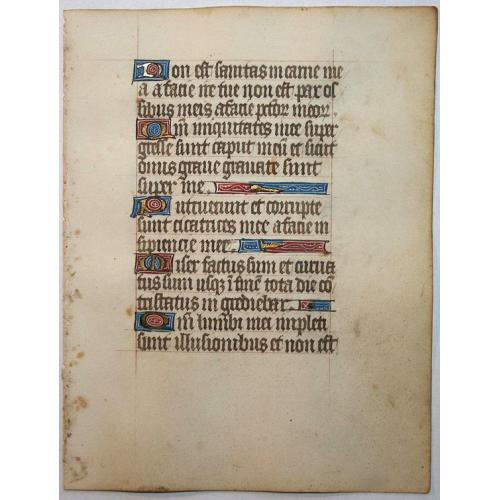 Non est sanitas in carne me
a a facie ire tue non est pax os
sibus meis a facie pctor meor
Qm iniquitates mee super
gresse sunt caput meū et sicut
onus graue grauate sunt
super me
Putruerunt et corrupte
sunt cicatrices mee a facie in
sipiencie mee
Miser factus sum et curua
tus sum usqz ī finē tota die cō
tristatus in grediebar
Qm lumbi mei impleti
sunt illusionibus et non est